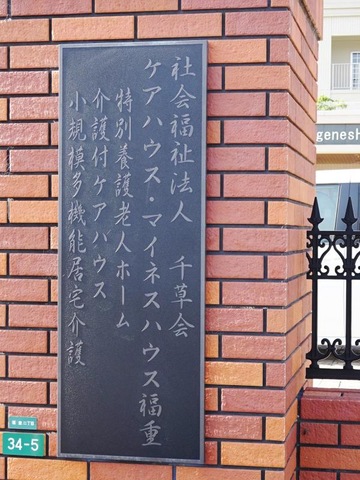 社会福祉法人 千草会
ケアハウス・マイネスハウス福重
特別養護老人ホーム
介護付ケアハウス
小規模多機能居宅介護
genesh
34-5